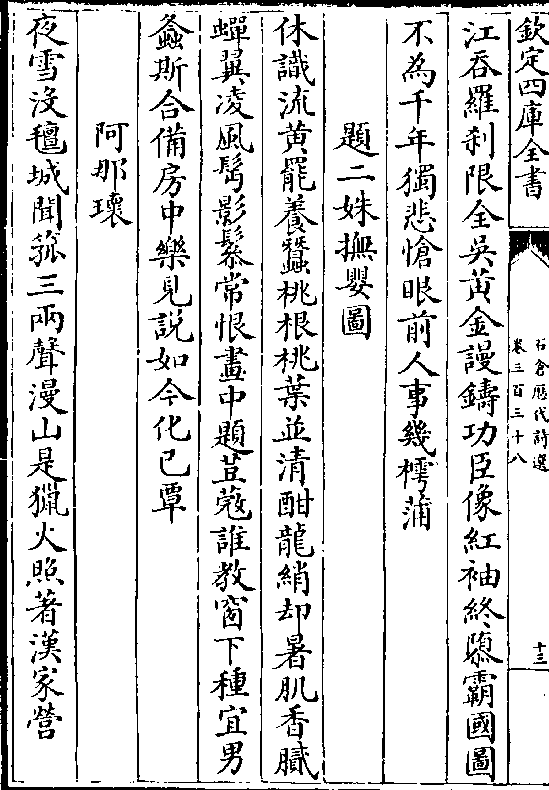 欽定四庫全書
石倉歷代詩選
卷三百三十八
十三
江吞羅刹限全吳黄金謾鑄功臣像紅袖終隳霸國圖
不為千年獨悲愴眼前人事幾樗蒲
題二姝撫嬰圖
休識流黄罷養蠶桃根桃葉並清酣龍綃却暑肌香膩
蟬翼凌風髩影鬖常恨畫中題荳蔲誰教窗下種宜男
螽斯合備房中樂見説如今化已覃
阿那瓌
夜雪沒氊城聞笳三兩聲漫山是獵火照著漢家營